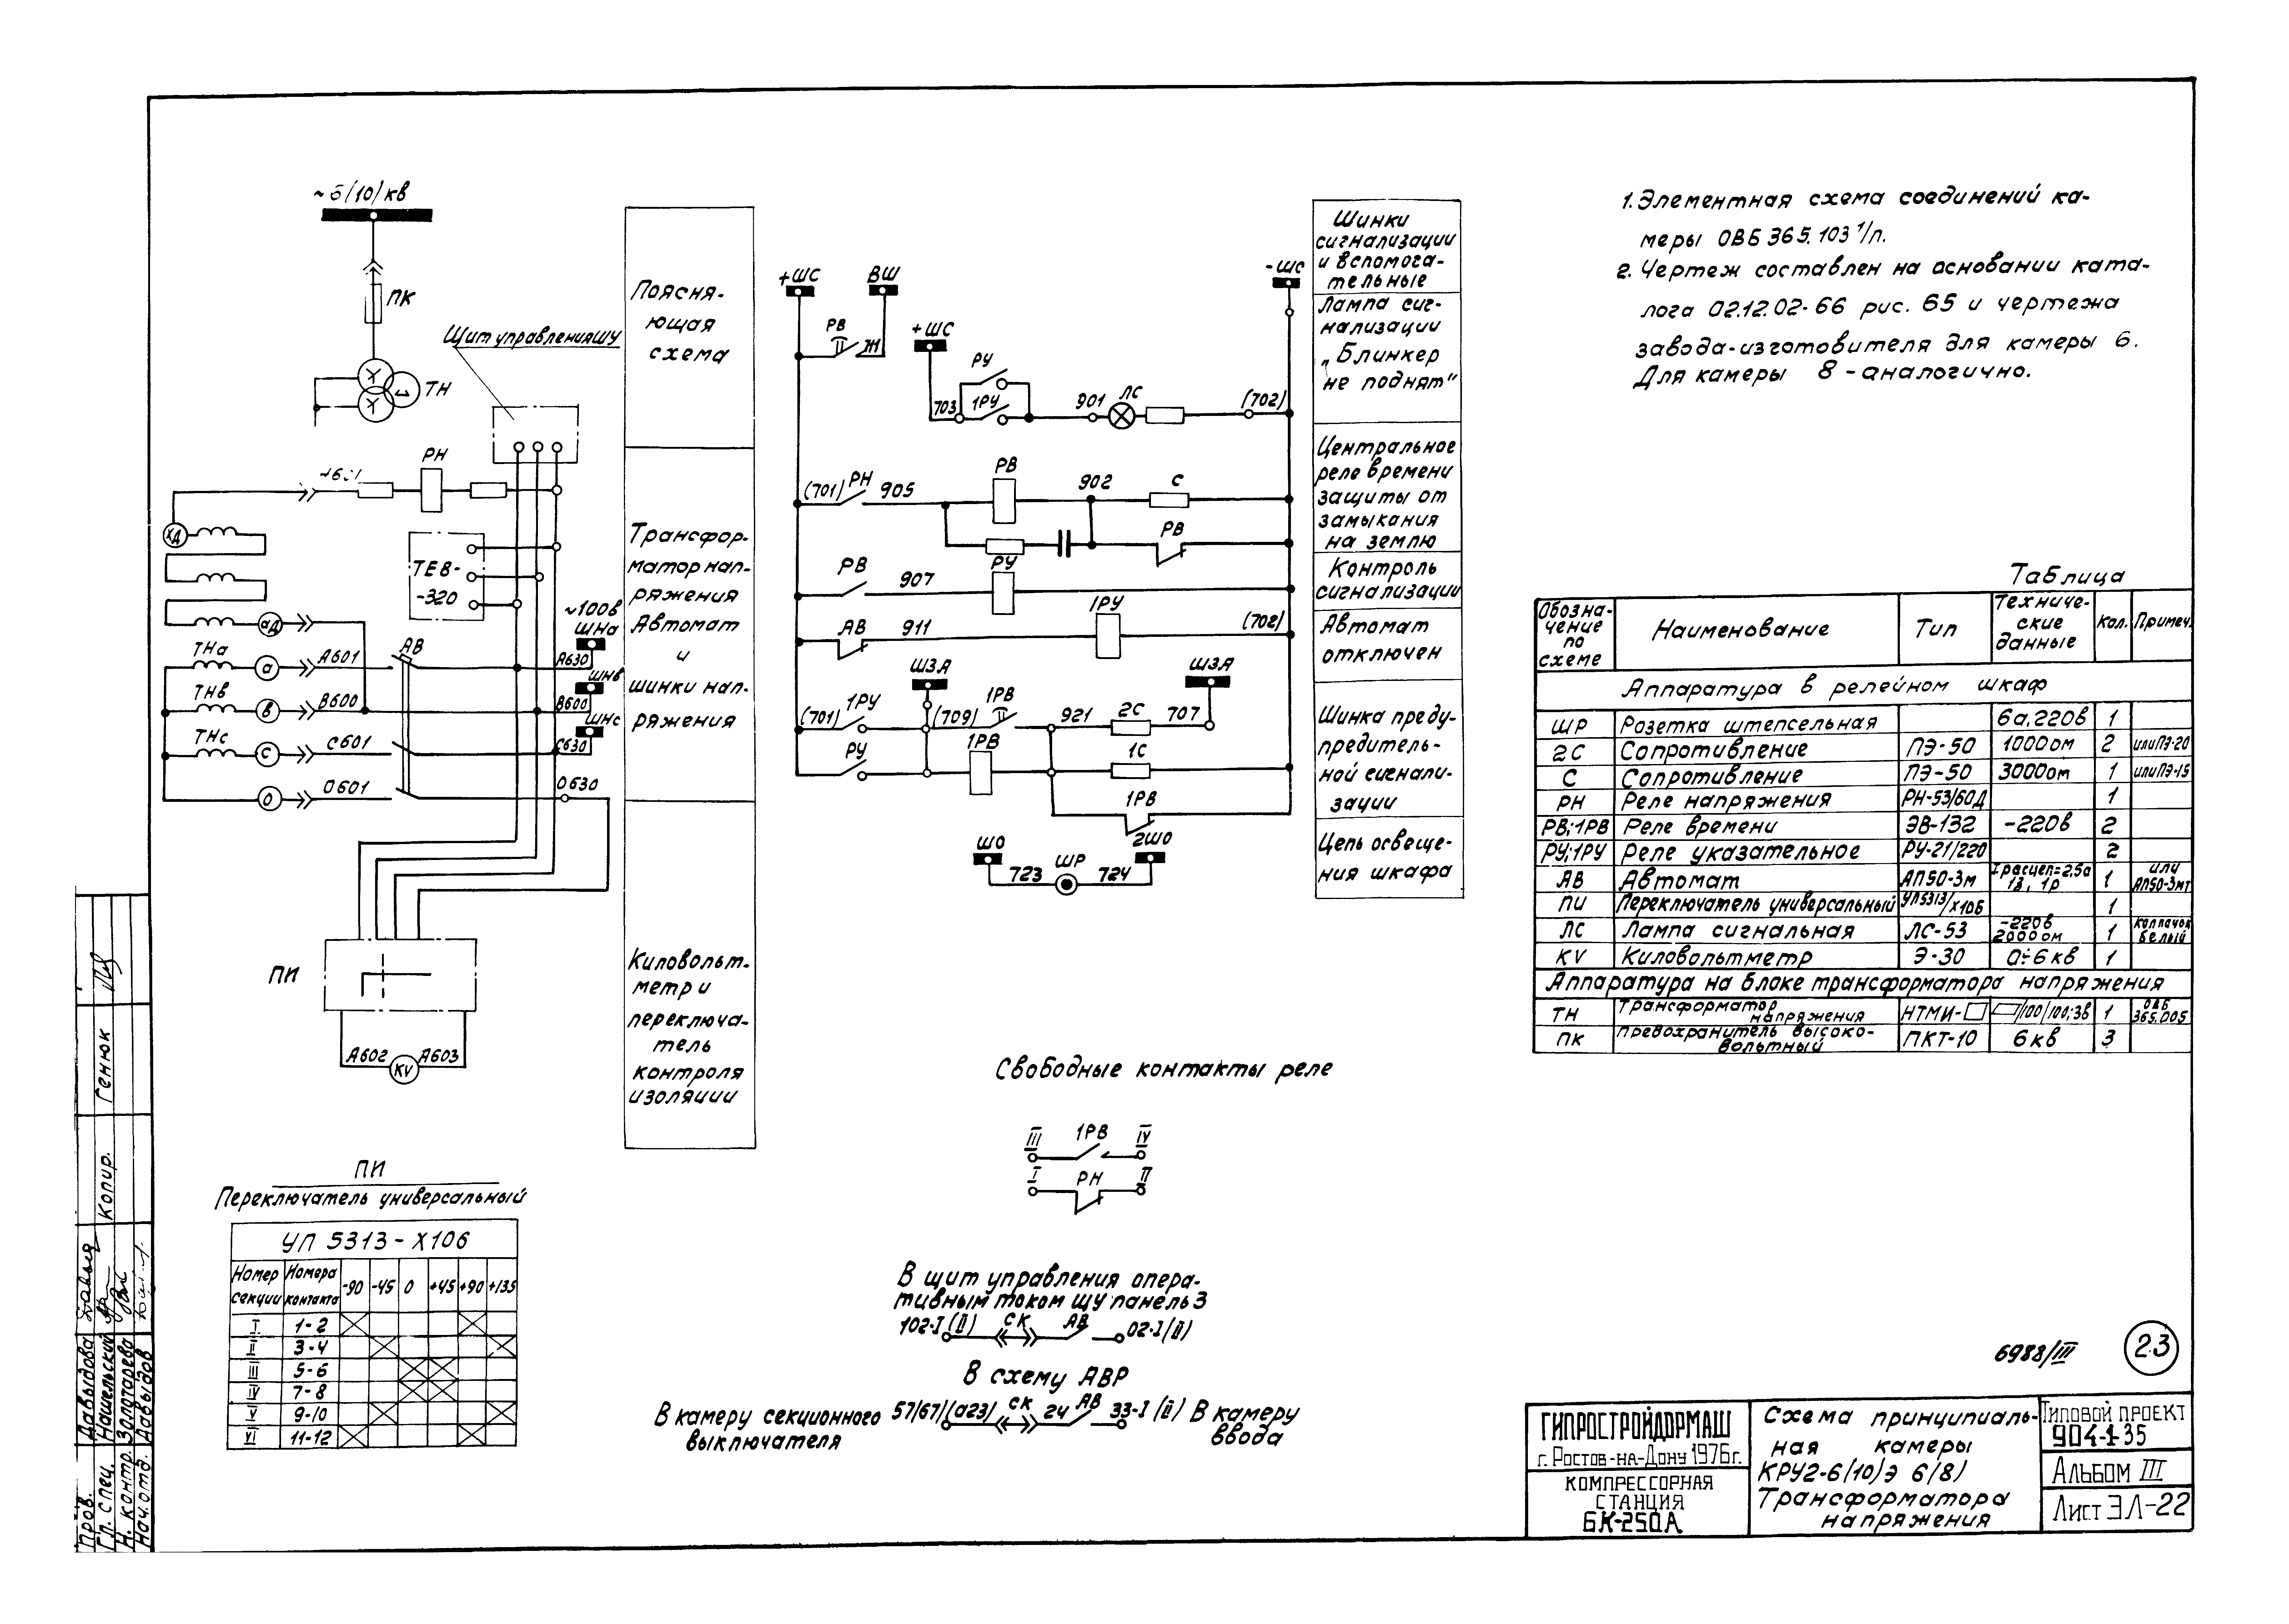 ~6/(10)/кв
ПК
ТН
Щит управления ЩУ
РН
ХД
ТЕВ-
-320
аД
~100в
ШНа
ТНа
а
А601
АВ
А630
ШНв
ТНв
в
В600
В600
ШНс
ТНс
с
С601
С630
0
0601
0630
ПИ
А602
KV
А603
Поясня-
ющая
схема
Трансфор-
матор нап-
ряжения
Автомат
и
шинки нап-
ряжения
Киловольт-
метр и
переключа-
тель
контроля
изоляции
+ШС
ВШ
-ШС
РВ
Ж
+ШС
РУ
703
1РУ
901
ЛС
(702)
(701)
РН
905
РВ
902
С
РВ
РВ
907
РУ
АВ
911
1РУ
(702)
ШЗА
ШЗА
(701)
1РУ
(709)
1РВ
921
2С
707
РУ
1РВ
1С
1РВ
ШО
2ШО
723
ШР
724
Шинки
сигнализации
и вспомога-
тельные
Лампа сиг-
нализации
„Блинкер
не поднят"
Центральное
реле времени
защиты от
замыкания
на землю
Контроль
сигнализации
Автомат
отключен
Шинка преду-
предитель-
ной сигнали-
зации
Цепь освеще-
ния шкафа
1. Элементная схема соединений ка-
меры ОВБ 365.103 1/п.
2. Чертеж составлен на основании ката-
лога 02.12.02-66 рис. 65 и чертежа
завода-изготовителя для камеры 6.
Для камеры 8 - аналогично.
Таблица
Обозна-
чение
по
схеме
Наименование
Тип
Техниче-
ские
данные
Кол.
Примеч.
Аппаратура в релейном шкаф
ШР Розетка штепсельная 6а, 220в 1
2С Сопротивление ПЭ-50 1000ом 2 или ПЭ-20
С Сопротивление ПЭ-50 3000ом 1 или ПЭ-15
РН Реле напряжения РН-53/60Д 1
РВ;1РВ Реле времени ЭВ-132 -220в 2
РУ;1РУ Реле указательное РУ-21/220 2
АВ Автомат АП50-3м Iрасцеп=2.5а 1з, 1р 1 или АП50-3мт
ПИ Переключатель универсальный УП5313/х106 1
ЛС Лампа сигнальная ЛС-53 -220в 2000ом 1 колпачок белый
KV Киловольтметр Э-30 0÷6кв 1
Аппаратура на блоке трансформатора напряжения
ТН Трансформатор напряжения НТМИ- /100/100:3в 1 ОВБ 365.005
ПК Превохранитель высоко-
вольтный ПКТ-10 6кв 3
Свободные контакты реле
III 1РВ IV
I РН II
ПИ
Переключатель универсальный
УП 5313-Х106
Номер
секции
Номера
контакта
-90 -45 0 +45 +90 +135
I 1-2
II 3-4
III 5-6
IV 7-8
V 9-10
VI 11-12
В щит управления опера-
тивным током ЩУ панель 3
102-I (II) СК АВ 02-I (II)
В схему АВР
В камеру секционного
выключателя
57/67/(а23) СК 24 АВ 33-I (II)
В камеру
ввода
6988/III
23
ГИПРОСТРОЙДОРМАШ
г. Ростов-на-Дону 1976г.
КОМПРЕССОРНАЯ
СТАНЦИЯ
6К-250А
Схема принципиаль-
ная камеры
КРУ2-6/(10)Э 6/8)
Трансформатора
напряжения
Типовой проект
904-1-35
Альбом III
Лист ЭЛ-22
Копир. Генюк
Пров. Давыдова
Гл. спец. Нашельский
Н. контр. Золотарева
Нач. отд. Давыдов